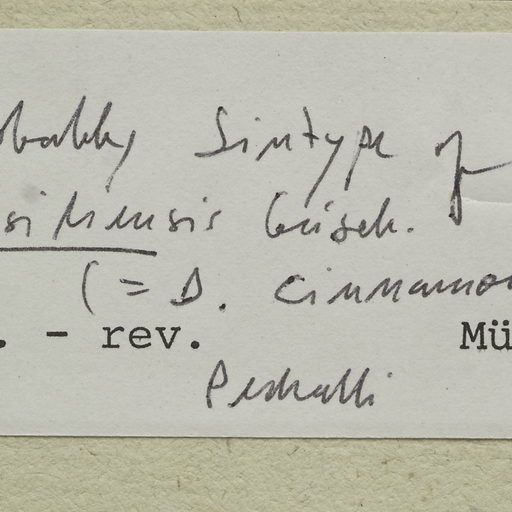 obably Sintype of
sikkimensis Griseb.
(= D. cinnamo
. - rev. Mü
Pedralli